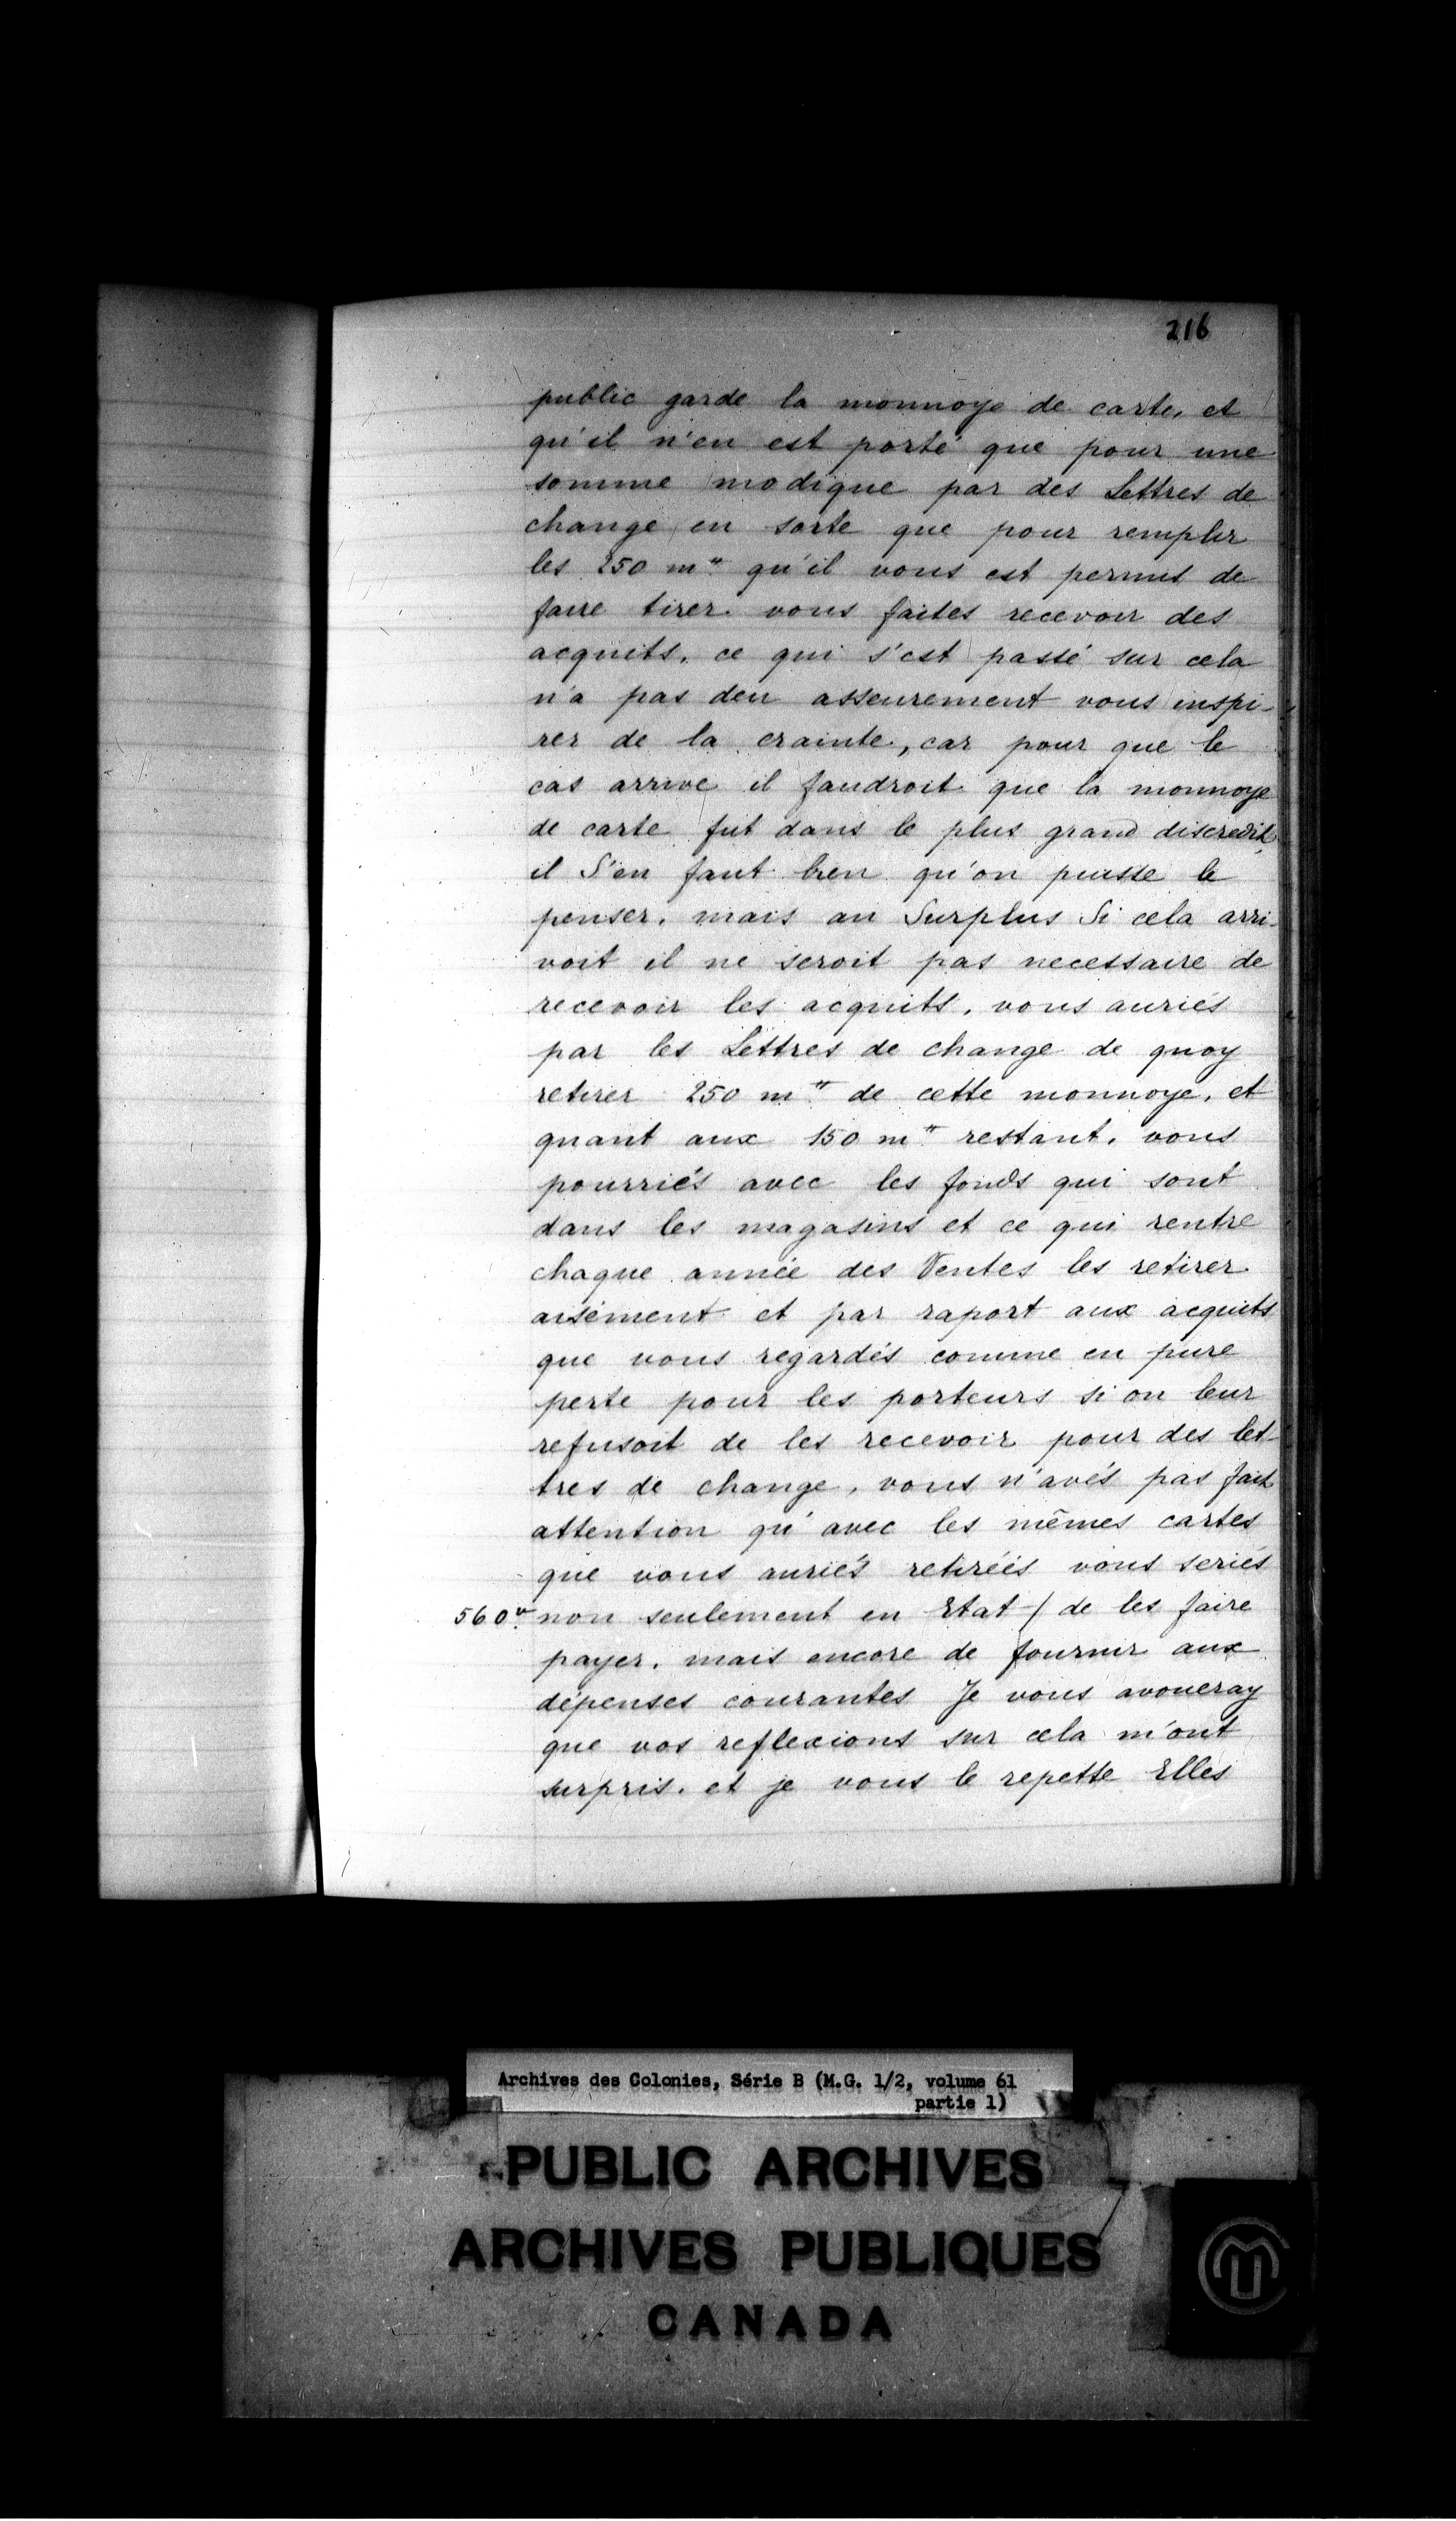 216
public garde la monnoye de carte, et
qu'il n'en est porté que pour une
somme modique par des Lettres de
change, en sorte que pour remplir
les 250 m# qu'il vous est permis de
faire tirer vous faites recevoir des
acquits, ce qui s'est passé sur cela
n'a pas deu asseurement vous inspi-
rer de la crainte, car pour que le
cas arrive il faudroit que la monnoye
de carte fut dans le plus grand discredit
il S'en faut bien qu'on puisse le
penser, mais au Surplus Si cela arri-
voit il ne seroit pas necessaire de
recevoir les acquits, vous auriés
par les Lettres de change de quoy
retirer 250 m# de cette monnoye, et
quant aux 150 m# restant, vous
pourriés avec les fonds qui sont
dans les magasins et ce qui rentre
chaque année des Ventes les retirer
aisément et par raport aux acquits
que vous regardés comme en pure
perte pour les porteurs si on leur
refusoit de les recevoir pour des let-
tres de change, vous n'avés pas fait
attention qu'avec les mêmes cartes
que vous auriés retirées vous seriés
560v. non seulement en Etat / de les faire
payer, mais encore de fournir aux
dépenses courantes Je vous avoueray
que vos reflexions sur cela m'ont
surpris, et je vous le repette Elles
Archives des Colonies, Série B (M.G. 1/2, volume 61
partie 1)
PUBLIC ARCHIVES
ARCHIVES PUBLIQUES
CANADA